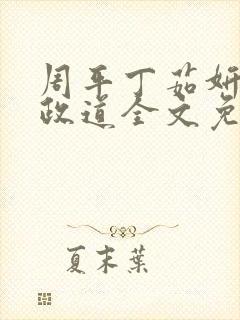 周平丁茹妍
政道全文免
夏末葉